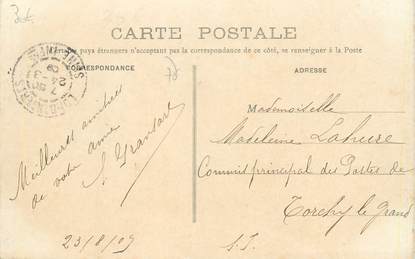 CARTE POSTALE
pays étrangers n'acceptant pas la correspondance de ce côté, se renseigner à la Poste
CORRESPONDANCE
ADRESSE
Meilleures amitiés
de votre amie
23/8/09
Mademoiselle
Madeleine Laheure
Commis principal des Postes de
Torchy le grand